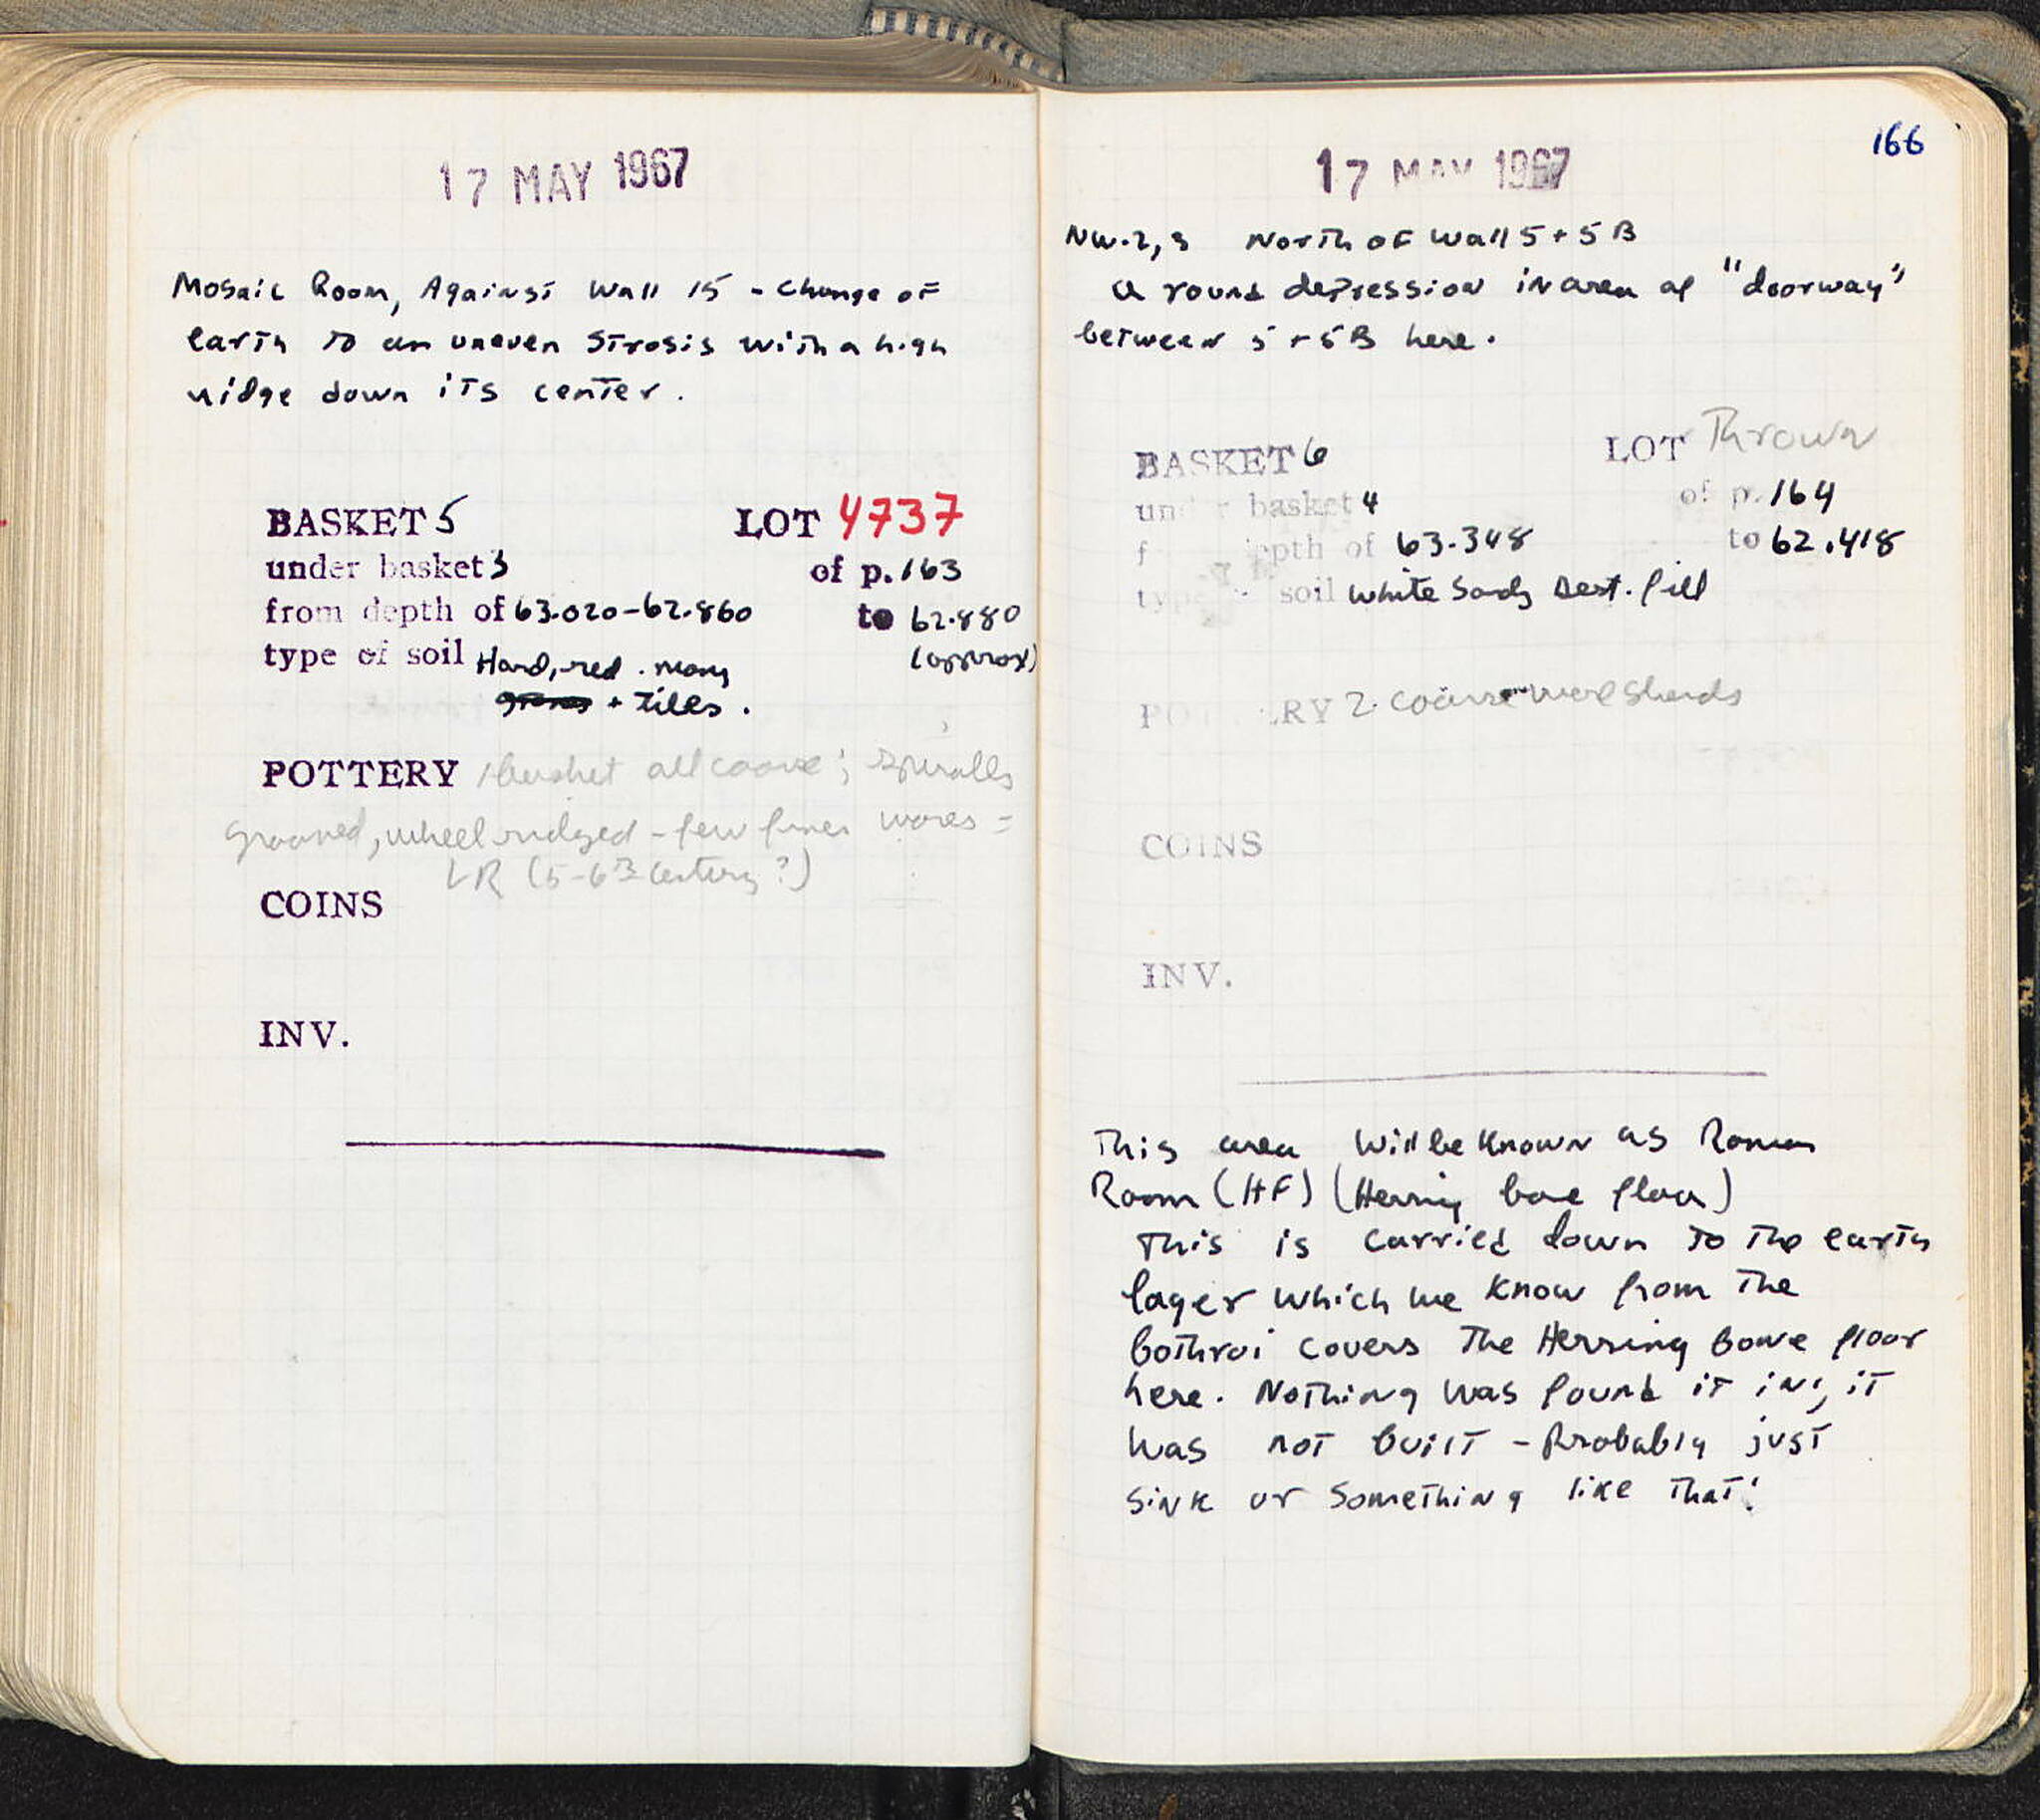 17 MAY 1967
Mosaic Room, Against Wall 15 - change of
earth to an uneven Strosis with a high
ridge down its center.
BASKET 5 LOT 4737
under basket 3 of p. 163
from depth of 63.020-62.860 to 62.880
type of soil Hard, red. many (approx)
+ tiles.
POTTERY 1 basket all coarse; spirally
grooved, wheel ridged - few finer wares =
LR (5-6th century?)
COINS
INV.
166
17 MAY 1967
NW.2,3 North of Wall 5 + 5B
a round depression in area of "doorway"
between 5 + 5B here.
BASKET 6 LOT Thrown
under basket 4 of p. 164
f epth of 63.348 to 62.418
type soil white Sandy Dest. fill
POTTERY 2 coarse ware sherds
COINS
INV.
This area will be known as Roman
Room (HF) (Herring bone floor)
This is carried down to the earth
layer which we know from the
bothroi covers the Herring bone floor
here. Nothing was found it in, it
was not built - Probably just
sink or something like that!